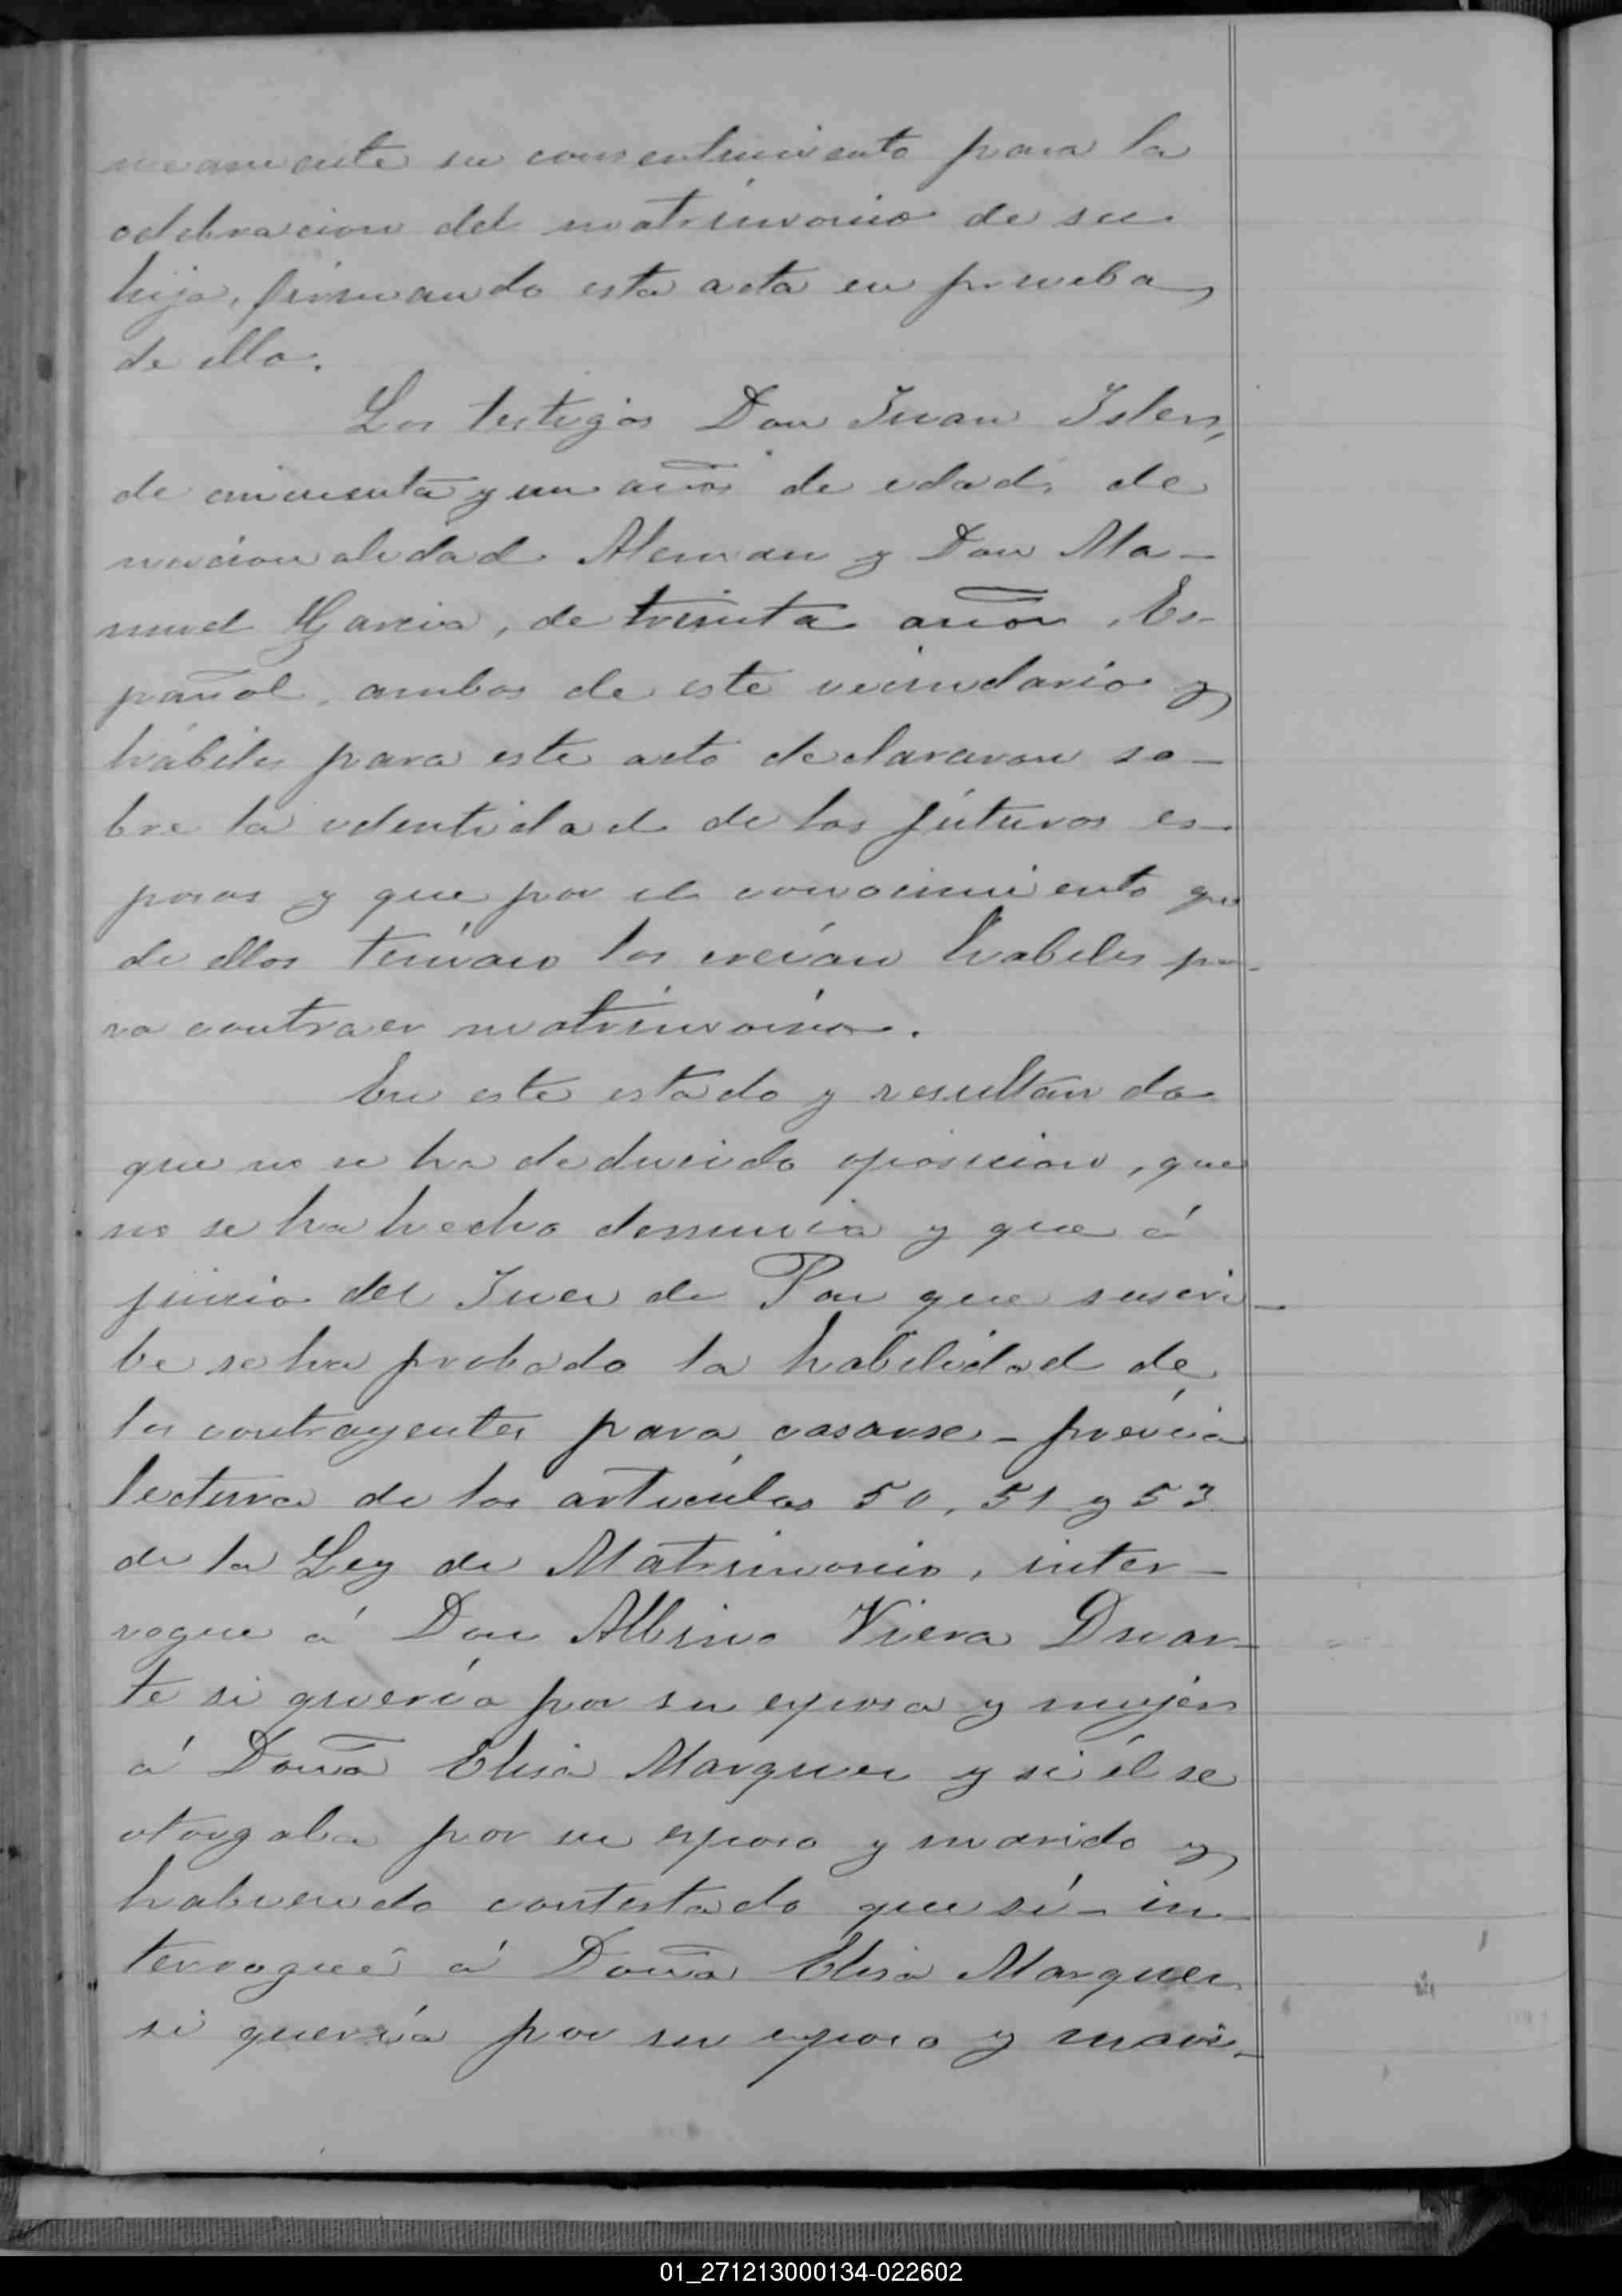 neamente su consentimiento para la
celebracion del matrimonio de su
hija, firmando esta acta en prueba
de ello.
Los testigos Don Juan Islen,
de cincuenta y un años de edad, de
nacionalidad Aleman y Don Ma-
nuel Garcia, de treinta años, Es-
pañol, ambos de este vecindario y
hábiles para este acto declararon so-
bre la identidad de los futuros es-
posos y que por el conocimiento que
de ellos tenían los creían habiles pa-
ra contraer matrimonio.
En este estado y resultando
que no se ha deducido oposicion, que
no se ha hecho denuncia y que á
juicio del Juez de Paz que suscri-
be se ha probado la habilidad de
los contrayentes para casarse - prévia
lectura de los artículos 50, 51 y 53
de la Ley de Matrimonio, inter-
rogue á Don Albino Viera Duar-
te si quería por su esposa y mujer
á Doña Elisa Marquez y si él se
otorgaba por su esposo y marido y
habiendo contestado que sí - in-
terrogué á Doña Elisa Marquez
si quería por su esposo y mari-
01_271213000134-022602